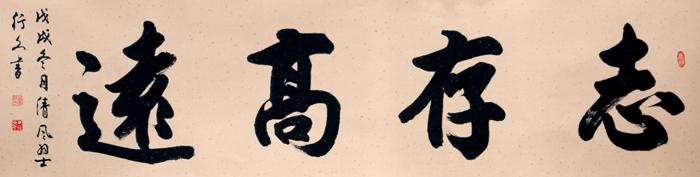 志存高遠
戊戌冬月清風羽士
行之書